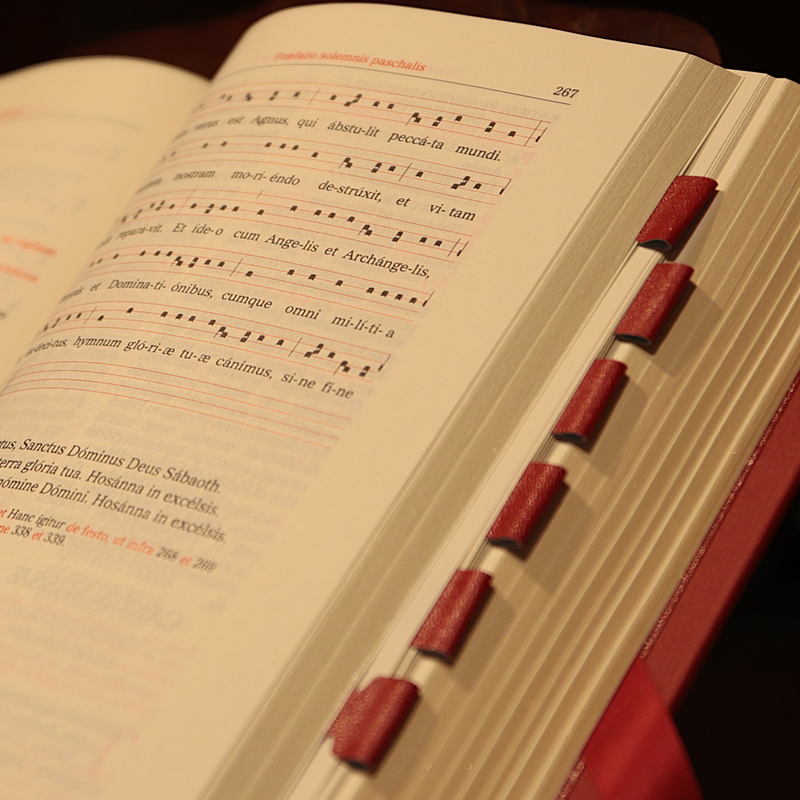 Præfatio solemnis paschalis
267
verus est Agnus, qui ábstu-lit peccá-ta mundi.
nostram mo-ri-éndo de-strúxit, et vi-tam
repará-vit. Et íde-o cum Ange-lis et Archánge-lis,
et Domina-ti-ónibus, cumque omni mi-lí-ti-a
hymnum gló-ri-æ tu-æ cánimus, si-ne fi-ne
Sanctus Dóminus Deus Sábaoth.
terra glória tua. Hosánna in excélsis.
nómine Dómini. Hosánna in excélsis.
et Hanc ígitur de festo, ut infra 268 et 269
338 et 339.